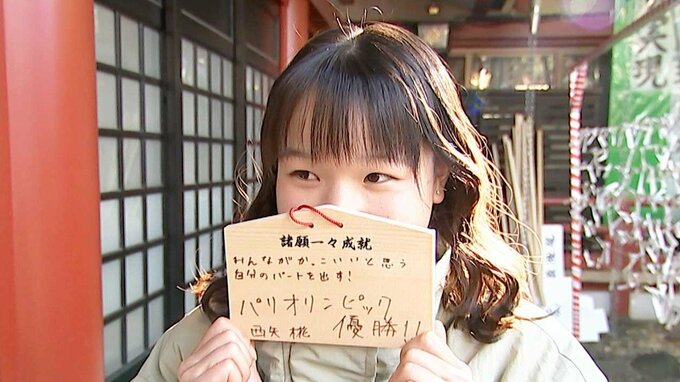 諸願一々成就
みんながかっこいいと思う
自分のパートを出す!
パリオリンピック
西矢 椛 優勝!!
実現